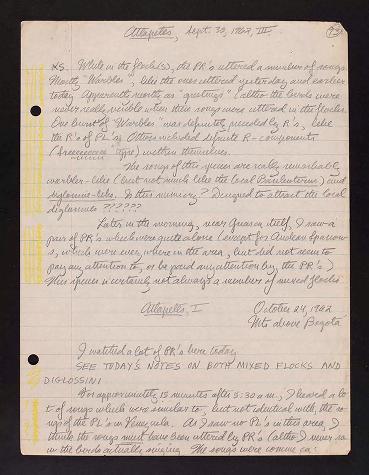 Atlapetes, Sept. 30, 1962, III
XS. While in the flock(s), did PR's uttered a number of songs.
Mostly "Warbles", like the ones uttered yesterday and earlier
today. Apparently mostly as "greetings" (altho the birds were
never really visible when these songs were uttered in the flocks.
One burst of "Warbles" was definitely preceded by R's, like
the R's of PL's. Others included definite R-components
type) within themselves.
The songs of this species are really remarkably
warbler-like (but not much like the local Basileuterus) and
diglossine-like. Is this mimicry? Designed to attract the local
diglossines ?????
Later in the morning, near Guasca itself, I saw a
pair of PR's which were quite alone (except for Andean Sparrow-
s, which were everywhere in the area, but did not seem to
pay any attention to, or be paid any attention by the PR's.)
This species is certainly not always a member of mixed flocks
Atlapetes, I October 24, 1962
Mts above Bogotá
I watched a lot of PR's here today
SEE TODAY'S NOTES ON BOTH MIXED FLOCKS AND
DIGLOSSINI
For approximately 15 minutes after 5:30 a.m., I heard a lo-
t of songs which were similar to, but not identical with, the so-
ngs of the PL's in Venezuela. As I saw no PL's in this area, I
think the songs must have been uttered by PR's (altho I never sa-
w the birds actually singing. The songs were